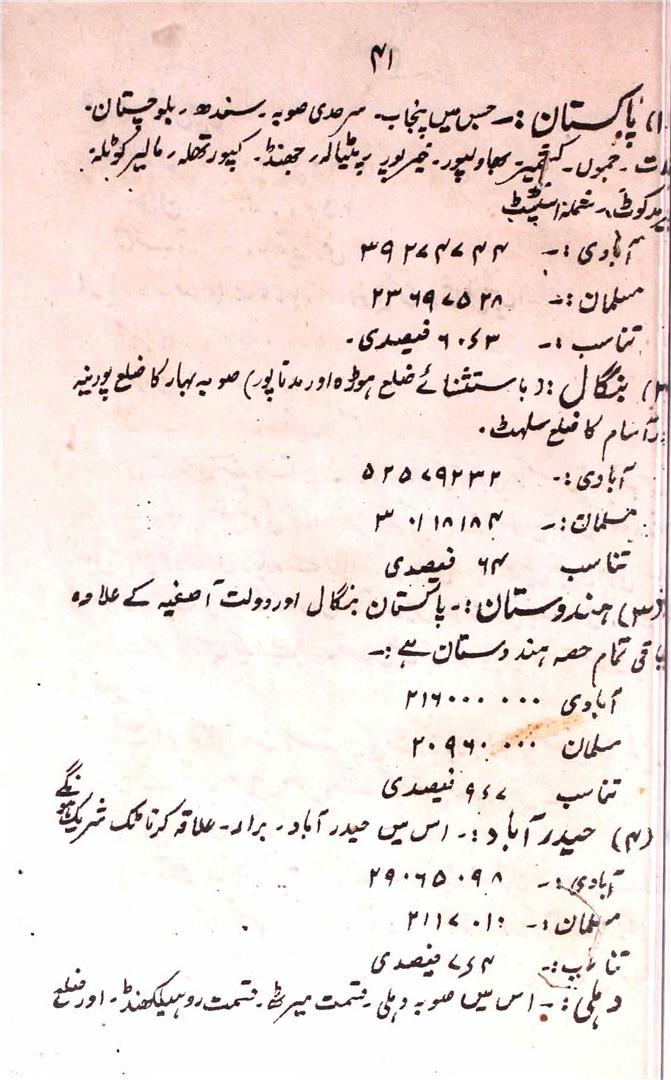 ۴۱
۱) پاکستان :۔ جس میں پنجاب۔ سرحدی صوبہ۔ سندھ۔ بلوچستان۔
جموں۔ کشمیر بھاولپور۔ خیرپور پر پٹیالہ۔ جھنڈ۔ کپورتھلہ۔ مالیر کوٹلہ۔
شملہ اسٹیٹ
آبادی :۔ ۳۹۲۷۴۷۴۴
مسلمان :۔ ۲۳۶۹۷۵۲۸
تناسب :۔ ۶۰ء۳ فیصدی۔
) بنگال :( باستثنائے ضلع ہوڑہ اور مدناپور) صوبہ بہار کا ضلع پورنیہ
آسام کا ضلع سلہٹ۔
آبادی :۔ ۵۲۵۷۹۲۳۲
مسلمان :۔ ۳۰۱۱۸۱۸۴
تناسب ۶۴ فیصدی
(۳) ہندوستان :۔ پاکستان بنگال اور دولت آصفیہ کے علاوہ
باقی تمام حصہ ہندوستان ہے :۔
آبادی ۲۱۶۰۰۰۰۰۰
مسلمان ۲۰۹۶۰۰۰۰
تناسب ۹ء۷ فیصدی
(۴) حیدرآباد :۔ اس میں حیدرآباد۔ برار۔ علاقہ کرناٹک شریک ہونگے
آبادی :۔ ۲۹۰۶۵۰۹۸
مسلمان :۔ ۲۱۱۷۰۱۰
تناسب :۔ ۷ء۴ فیصدی
دہلی :۔ اس میں صوبہ دہلی۔ قسمت میرٹھ۔ قسمت روہیلکھنڈ۔ اور ضلع